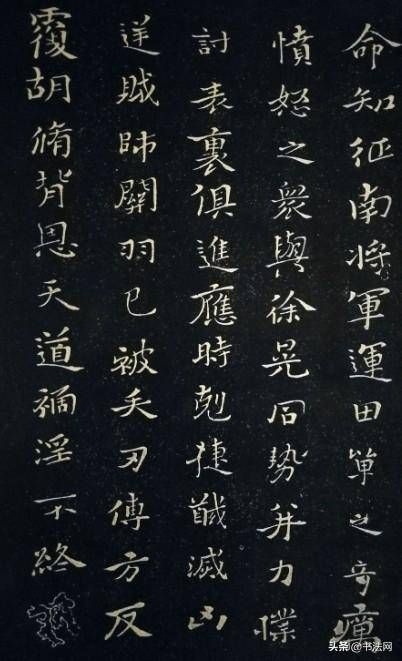 命知征南將軍運田單之奇厲
憤怒之衆與徐晃同勢并力撲
討表裏俱進應時剋捷馘滅凶
逆賊帥關羽已被矢刃傅方反
覆胡脩背恩天道禍淫不終
头条@书法网